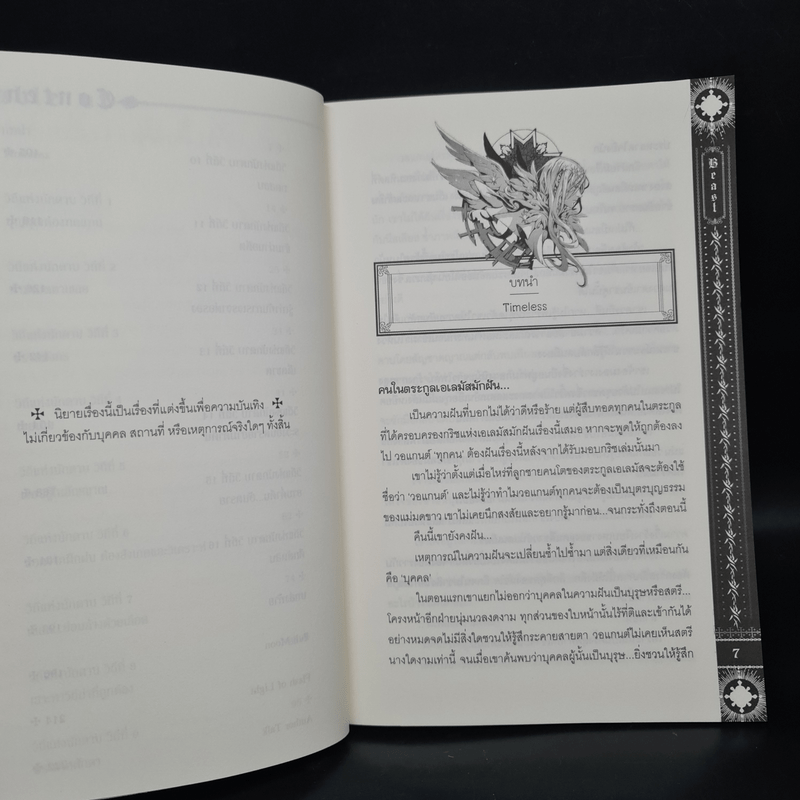 นิยายเรื่องนี้เป็นเรื่องที่แต่งขึ้นเพื่อความบันเทิง
ไม่เกี่ยวข้องกับบุคคล สถานที่ หรือเหตุการณ์จริงใดๆ ทั้งสิ้น
Beast
บทนำ
Timeless
คนในตระกูลเอเลมัสมักฝัน...
เป็นความฝันที่บอกไม่ได้ว่าดีหรือร้าย แต่ผู้สืบทอดทุกคนในตระกูล
ที่ได้ครอบครองกริชแห่งเอเลมัสมักฝันเรื่องนี้เสมอ หากจะพูดให้ถูกต้องลง
ไป วอแกนต์ 'ทุกคน' ต้องฝันเรื่องนี้หลังจากได้รับมอบกริชเล่มนั้นมา
เขาไม่รู้ว่าตั้งแต่เมื่อไหร่ที่ลูกชายคนโตของตระกูลเอเลมัสจะต้องใช้
ชื่อว่า 'วอแกนต์' และไม่รู้ว่าทำไมวอแกนต์ทุกคนจะต้องเป็นบุตรบุญธรรม
ของแม่มดขาว เขาไม่เคยนึกสงสัยและอยากรู้มาก่อน...จนกระทั่งถึงตอนนี้
คืนนี้เขายังคงฝัน...
เหตุการณ์ในความฝันจะเปลี่ยนซ้ำไปซ้ำมา แต่สิ่งเดียวที่เหมือนกัน
คือ 'บุคคล'
ในตอนแรกเขาแยกไม่ออกว่าบุคคลในความฝันเป็นบุรุษหรือสตรี...
โครงหน้าอีกฝ่ายนุ่มนวลงดงาม ทุกส่วนของใบหน้านั้นไร้ที่ติและเข้ากันได้
อย่างหมดจดไม่มีสิ่งใดชวนให้รู้สึกระคายสายตา วอแกนต์ไม่เคยเห็นสตรี
นางใดงามเท่านี้ จนเมื่อเขาค้นพบว่าบุคคลผู้นั้นเป็นบุรุษ...ยิ่งชวนให้รู้สึก
7